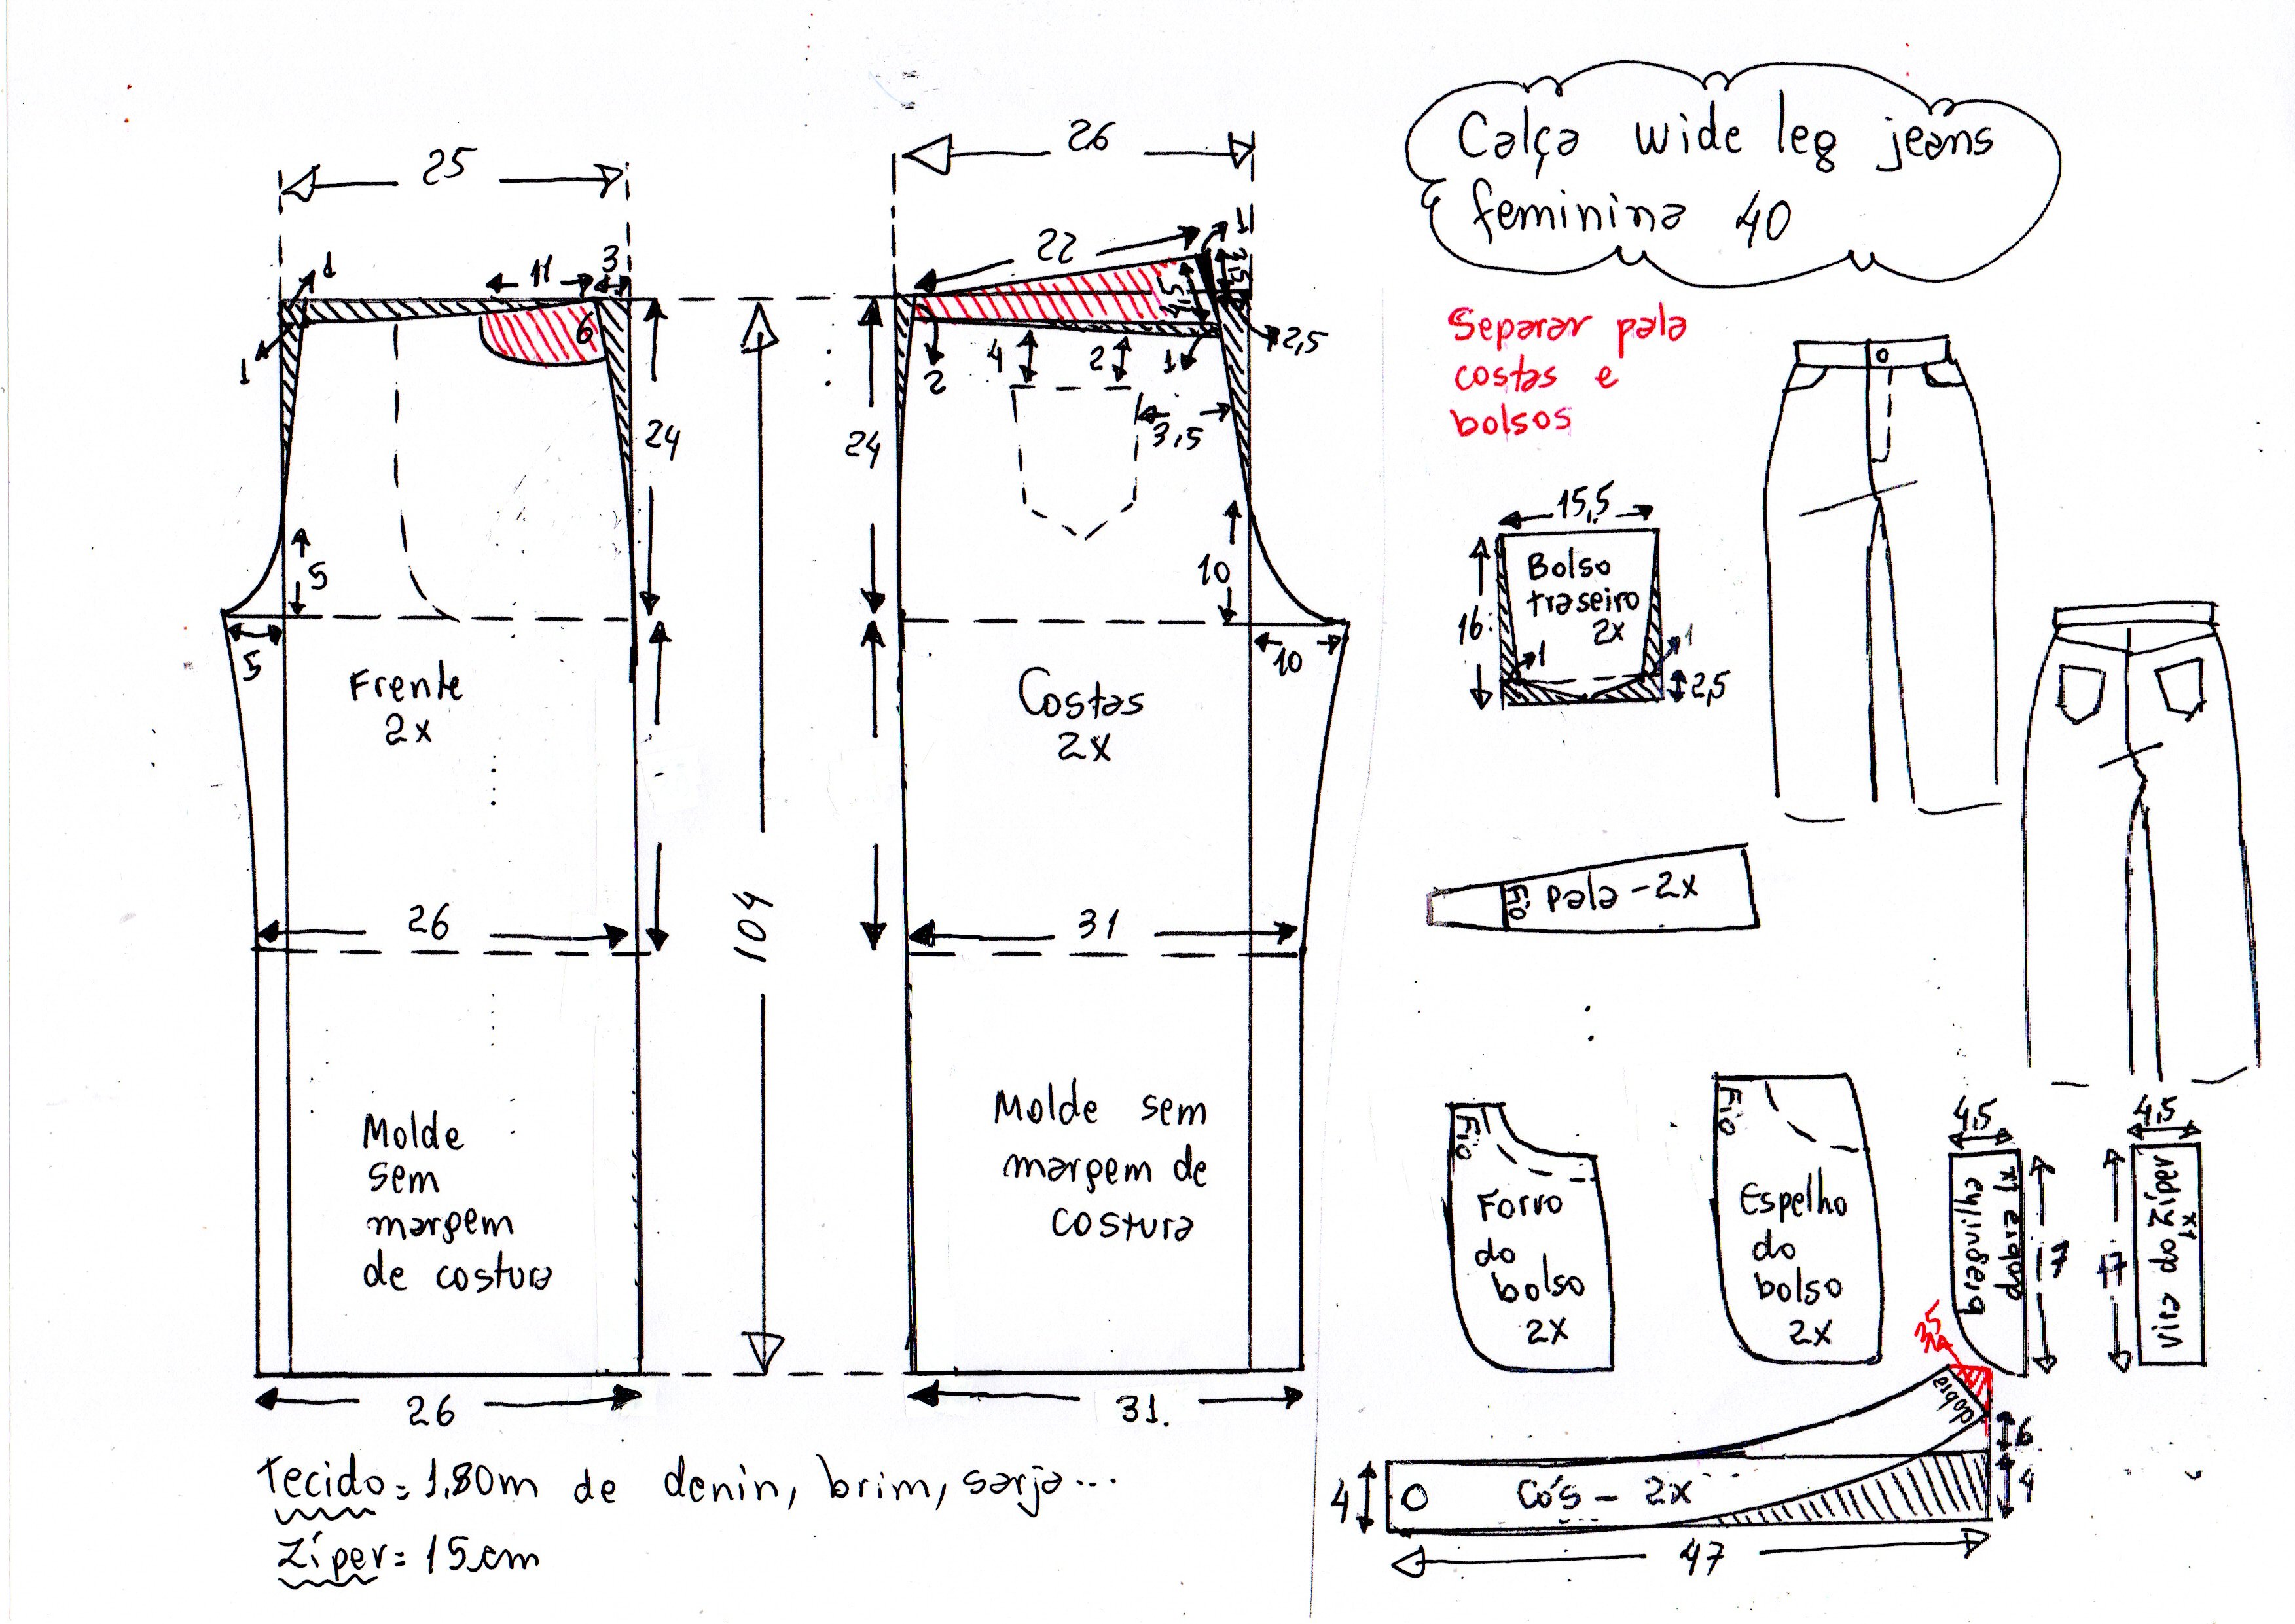 Calça wide leg jeans
feminina 40
25
26
1
11
3
6
1
24
5
5
Frente
2x
26
Molde
sem
margem
de costura
26
104
22
1
3,5
4,5
2,5
24
2
4
2
1
3,5
10
10
Costas
2x
31
Molde sem
margem de
costura
31.
Separar pala
costas e
bolsos
15,5
Bolso
traseiro
2x
16
1
1
2,5
Fio
pala - 2x
Fio
Forro
do
bolso
2x
Fio
Espelho
do
bolso
2x
4,5
braguilha
dobra 1x
17
4,5
vira do zíper
1x
17
3,5
dobra
6
4
4
Cós - 2x
47
Tecido = 1,80m de denin, brim, sarja...
Zíper = 15cm